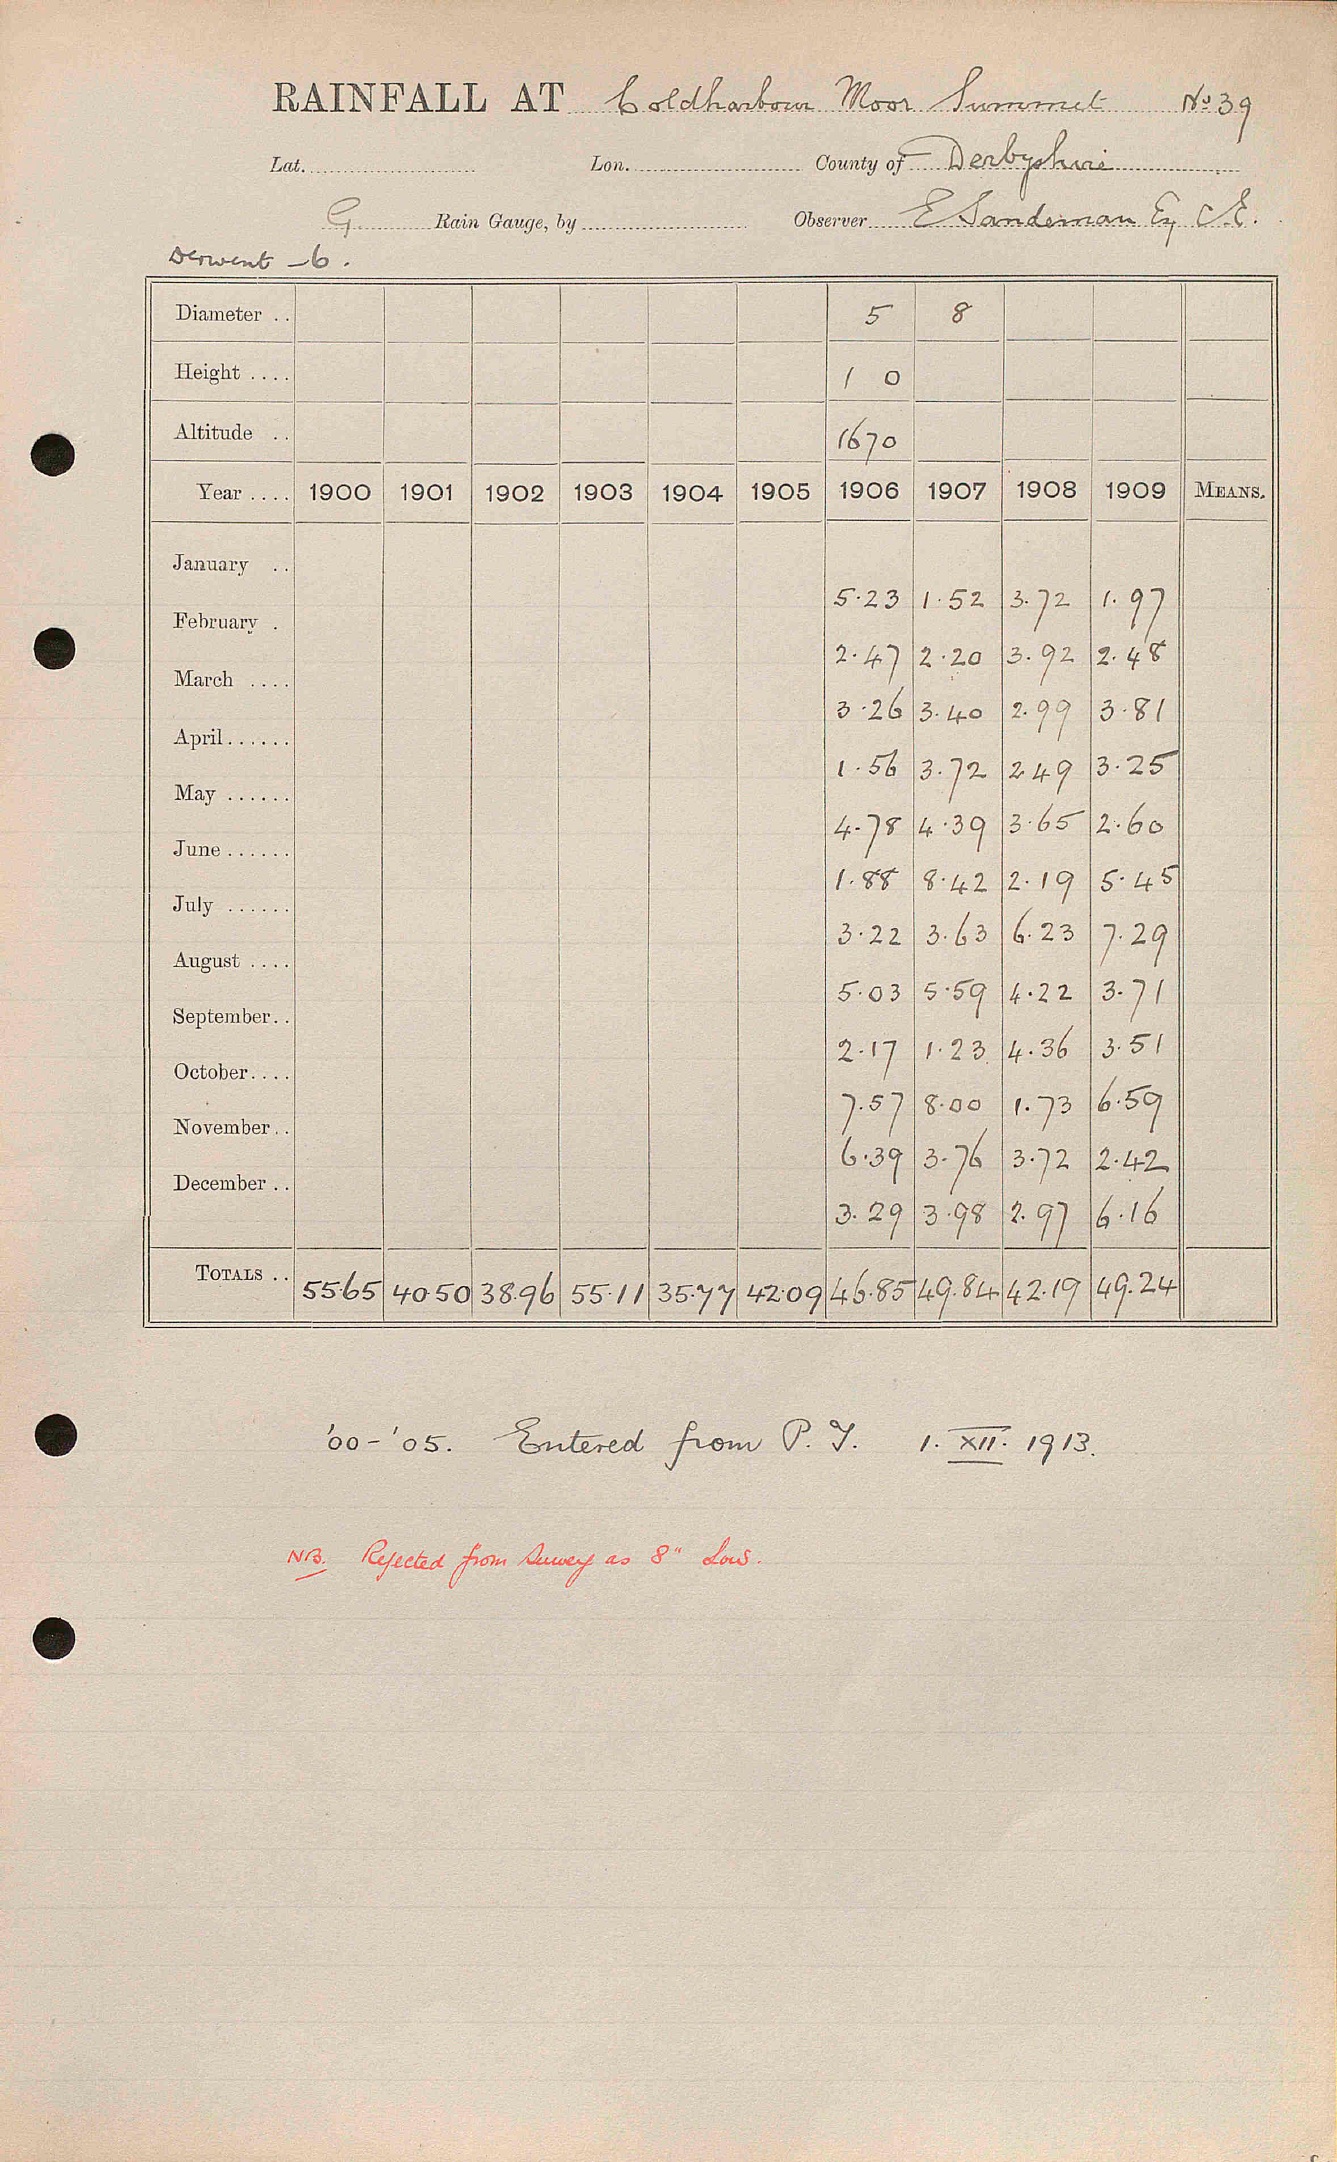 RAINFALL AT Coldharbour Moor Summit No 39
Lat. Lon. County of Derbyshire
G Rain Gauge, by Observer E Sandeman Esq C.E.
Derwent - 6.
Diameter .. 5 8
Height .... 1 0
Altitude .. 1670
Year .... 1900 1901 1902 1903 1904 1905 1906 1907 1908 1909 MEANS.
January .. 5.23 1.52 3.72 1.97
February . 2.47 2.20 3.92 2.48
March .... 3.26 3.40 2.99 3.81
April...... 1.56 3.72 2.49 3.25
May ...... 4.78 4.39 3.65 2.60
June ...... 1.88 8.42 2.19 5.45
July ...... 3.22 3.63 6.23 7.29
August .... 5.03 5.59 4.22 3.71
September.. 2.17 1.23 4.36 3.51
October.... 7.57 8.00 1.73 6.59
November.. 6.39 3.76 3.72 2.42
December .. 3.29 3.98 2.97 6.16
TOTALS .. 55.65 40.50 38.96 55.11 35.77 42.09 46.85 49.84 42.19 49.24
'00-'05. Entered from P. T. 1. XII. 1913.
NB. Rejected from Survey as 8" Low.